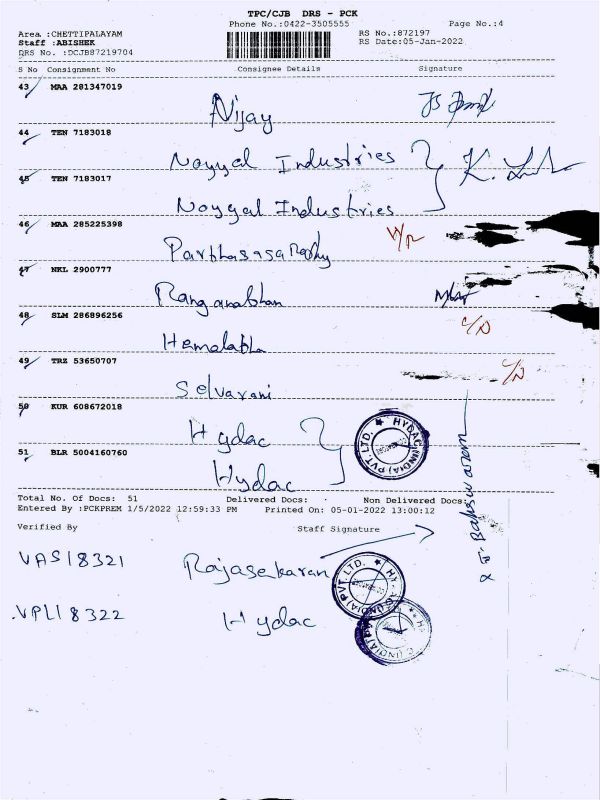 TPC/CJB DRS - PCK
Phone No.:0422-3505555 Page No.:4
Area :CHETTIPALAYAM RS No.:872197
Staff :ABISHEK RS Date:05-Jan-2022
DRS No. :DCJB87219704
S No Consignment No Consignee Details Signature
43 MAA 281347019
Vijay
44 TEN 7183018
Noyyal Industries
45 TEN 7183017
Noyyal Industries
46 MAA 285225398
47 NKL 2900777
48 SLM 286896256
Hemalatha
49 TRZ 53650707
Selvarani
50 KUR 608672018
Hydac
51 BLR 5004160760
Hydac
HYDAC (INDIA) PVT. LTD.
Total No. Of Docs: 51 Delivered Docs: Non Delivered Docs:
Entered By :PCKPREM 1/5/2022 12:59:33 PM Printed On: 05-01-2022 13:00:12
Verified By Staff Signature
VAS18321 Rajasekaran
VPL18322 Hydac